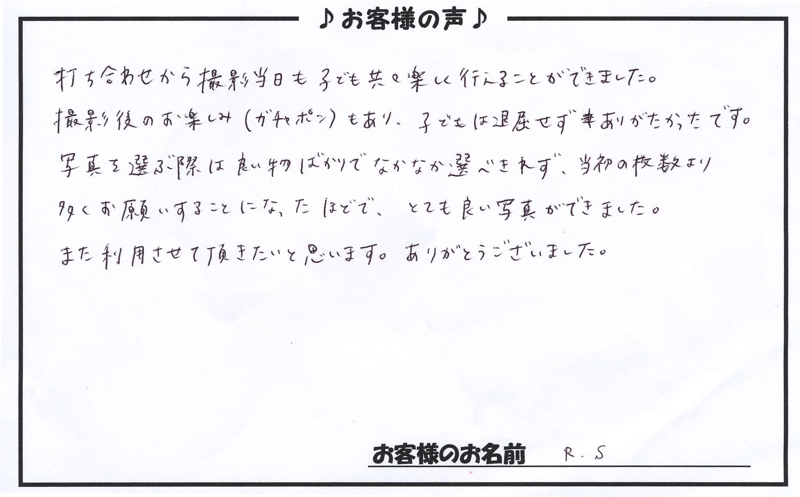 ♪お客様の声♪
打ち合わせから撮影当日も子ども共々楽しく行えることができました。
撮影後のお楽しみ(ガチャポン)もあり、子どもは退屈せずありがたかったです。
写真を選ぶ際は良い物ばかりでなかなか選べきれず、当初の枚数より
多くお願いすることになったほどで、とても良い写真ができました。
また利用させて頂きたいと思います。ありがとうございました。
お客様のお名前 R.S